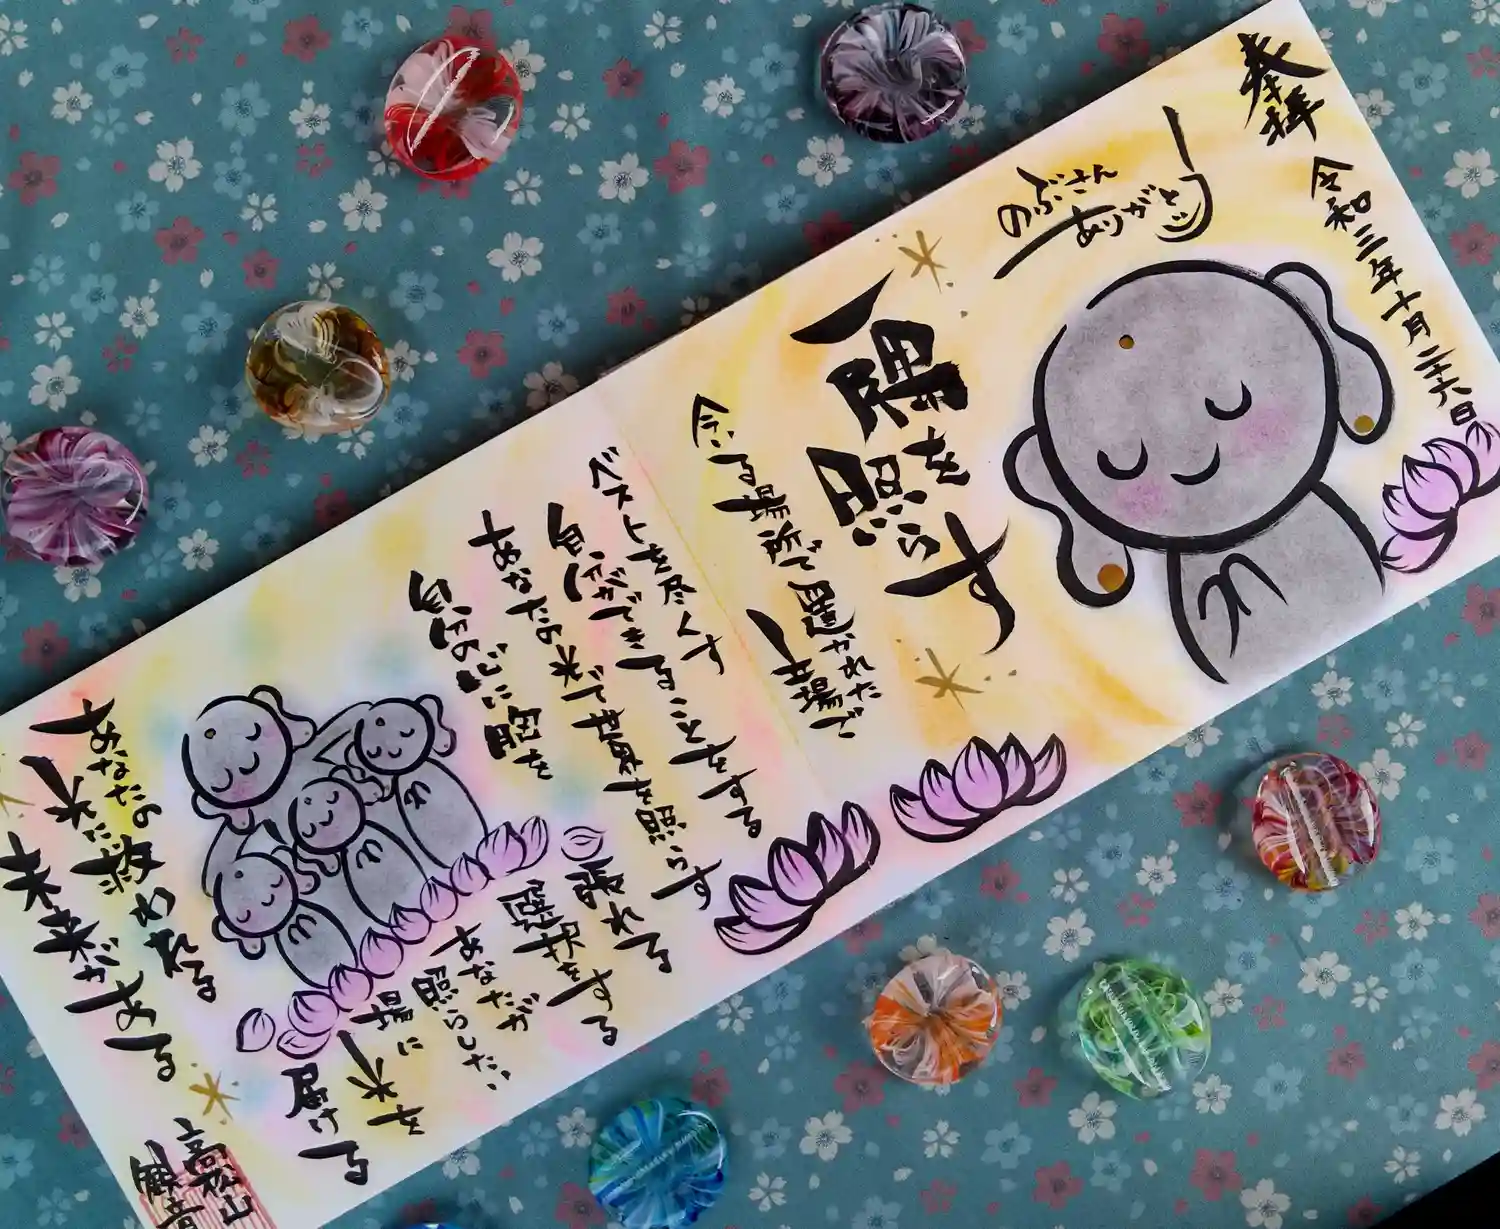 奉拝
令和三年十月二十六日
のぶさん
ありがとう
一隅を
照らす
今いる場所で置かれた
立場で
ベストを尽くす
自分ができることをする
あなたの光で世界を照らす
自分の心に
胸を
張れる
選択をする
あなたが
照らしたい
場に
光を
届ける
あなたの
光に救われる
未来がある
高松山
観音